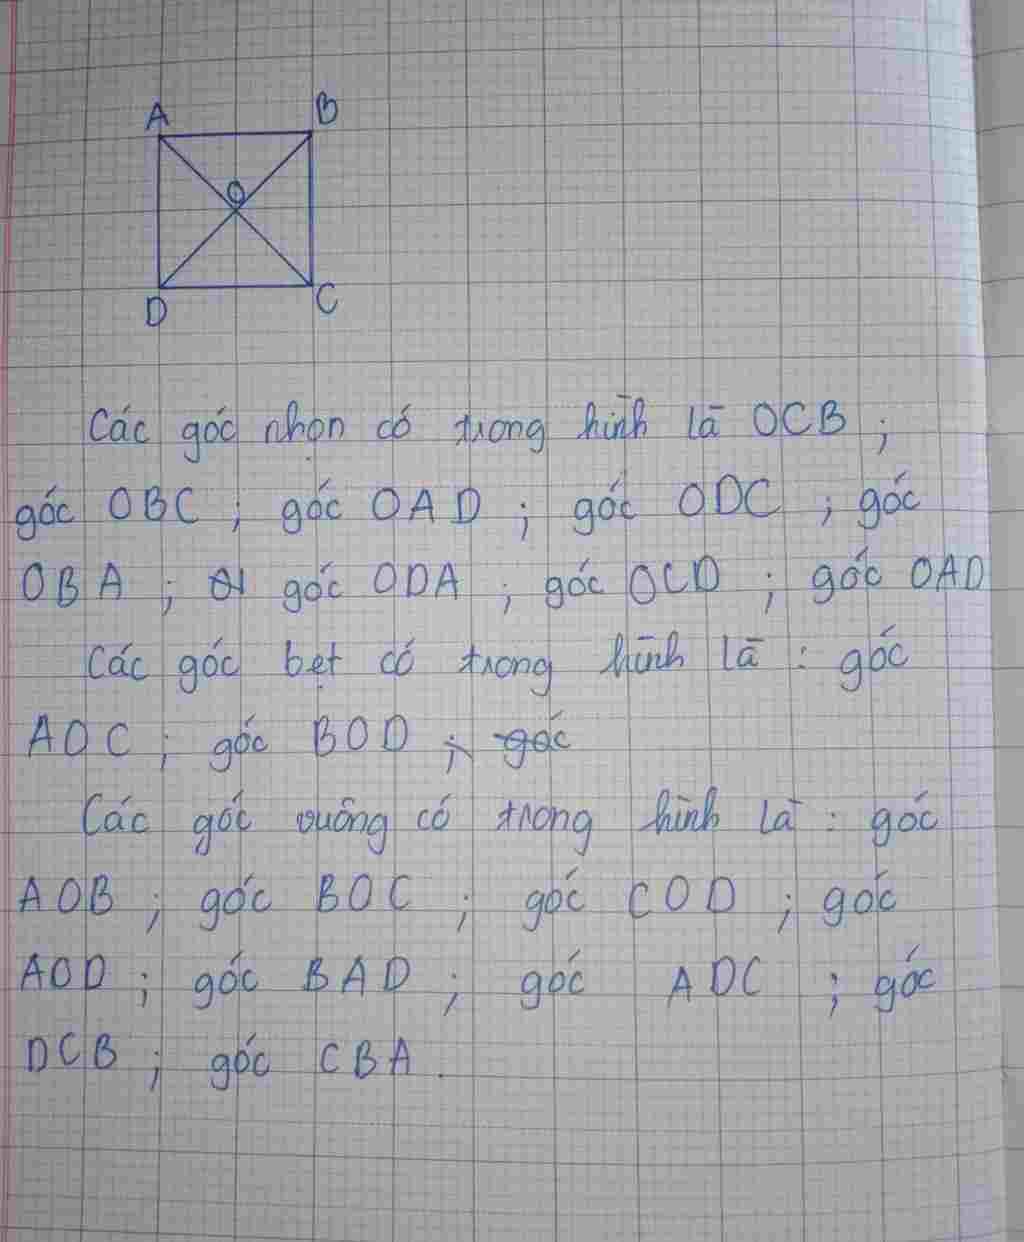 A B
O
D C
Các góc nhọn có trong hình là OCB ;
góc OBC ; góc OAD ; góc ODC ; góc
OBA ; góc ODA ; góc OCD ; góc OAD
Các góc bẹt có trong hình là : góc
AOC ; góc BOD ; góc
Các góc vuông có trong hình là : góc
AOB ; góc BOC ; góc COD ; góc
AOD ; góc BAD ; góc ADC ; góc
DCB ; góc CBA .